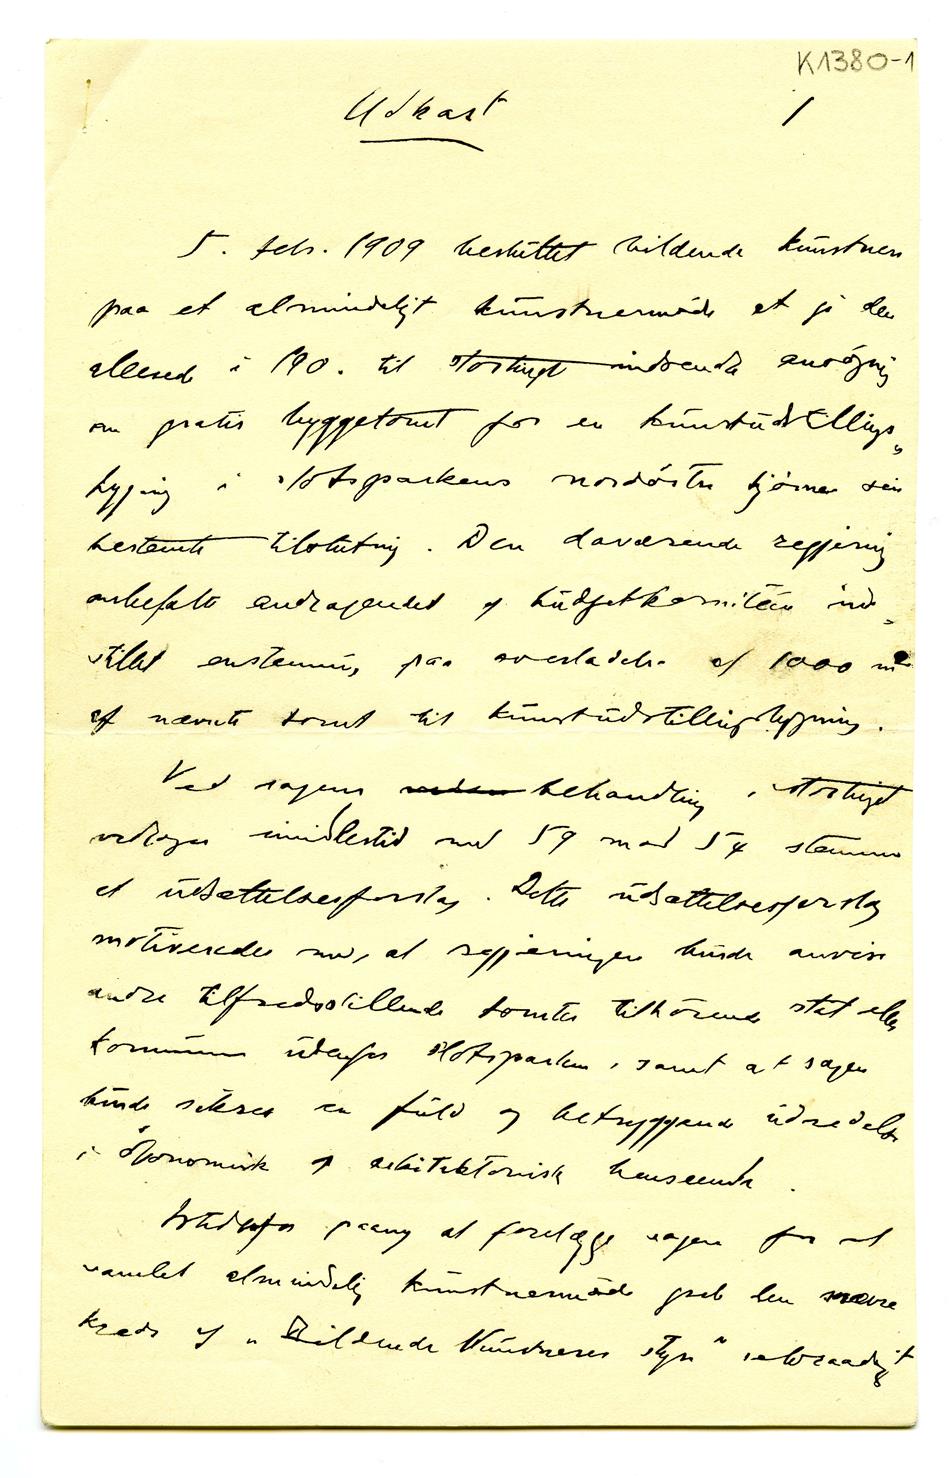 K1380-1
Udkast 1
5. febr. 1909 besluttet bildende kunstnere
paa et almindeligt kunstnermøde at gi den
allerede i 190. til stortinget indsendte ansögning
om gratis byggetomt for en kunstudstillings„
bygning i slotsparkens nordöstre hjörne sin
bestemte tilslutning. Den daværende regjering
anbefalte andragendet og budgetkomiteen ind„
stillet enstemmig paa overladelse af 1000 m²
af nævnte tomt til kunstudstillingsbygning.
Ved sagens behandling i stortinget
vedtoges imidlertid med 59 mod 54 stemmer
et udsættelsesforslag. Dette udsættelsesforslag
motiveredes med, at regjeringen burde anvise
andre tilfredsstillende tomter tilhörende stat eller
kommune udenfor slotsparken, samt at sagen
burde sikres en fuld og betryggende udredelse
i ökonomisk og arkitektonisk henseende.
Istedenfor paany at forelægge sagen for et
samlet almindelig kunstnermøde greb den snævre
kreds af „Bildende Kunstneres styre" selvraadigt